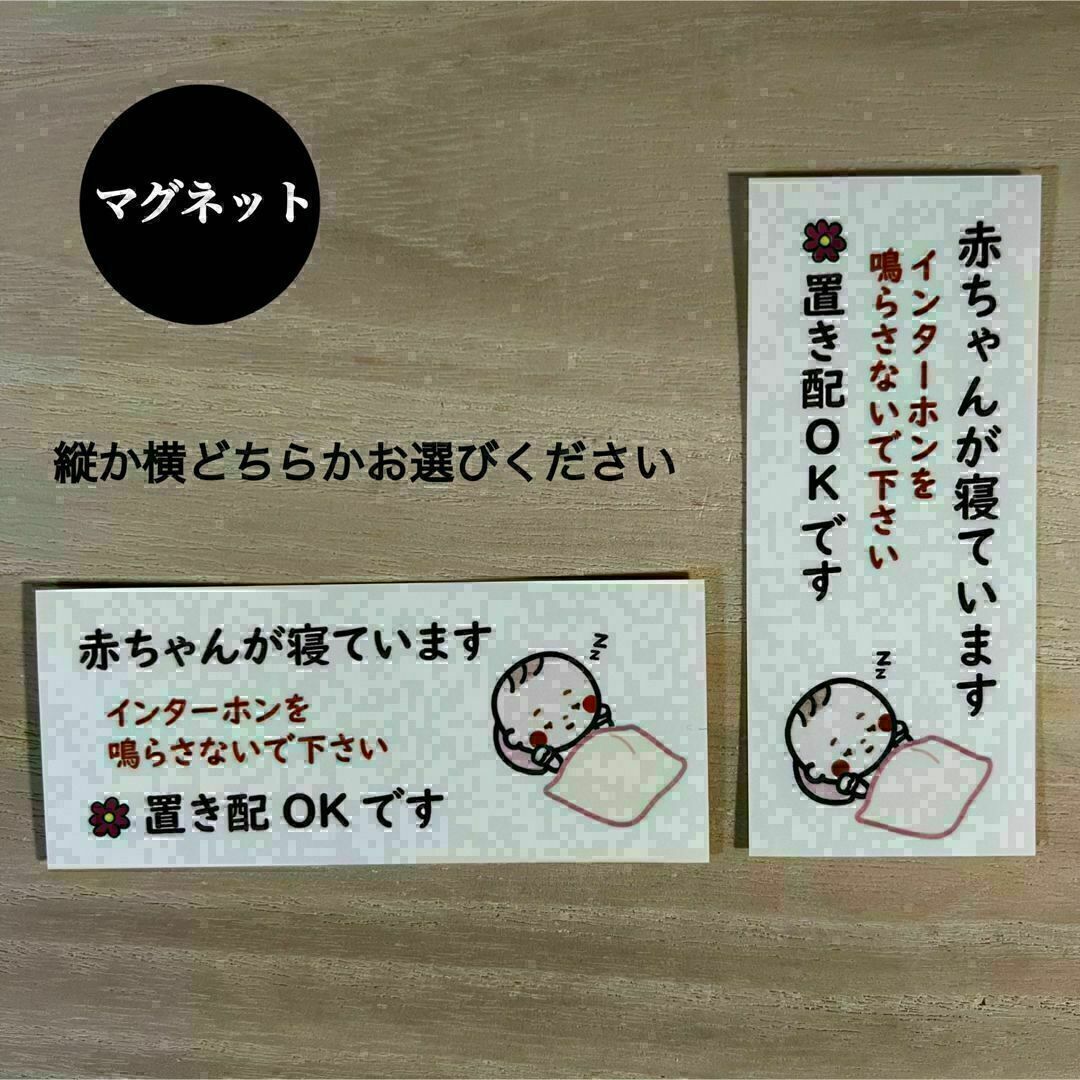 マグネット
縦か横どちらかお選びください
赤ちゃんが寝ています
インターホンを
鳴らさないで下さい
置き配OKです
zzz
赤ちゃんが寝ています
インターホンを
鳴らさないで下さい
置き配 OK です
zzz